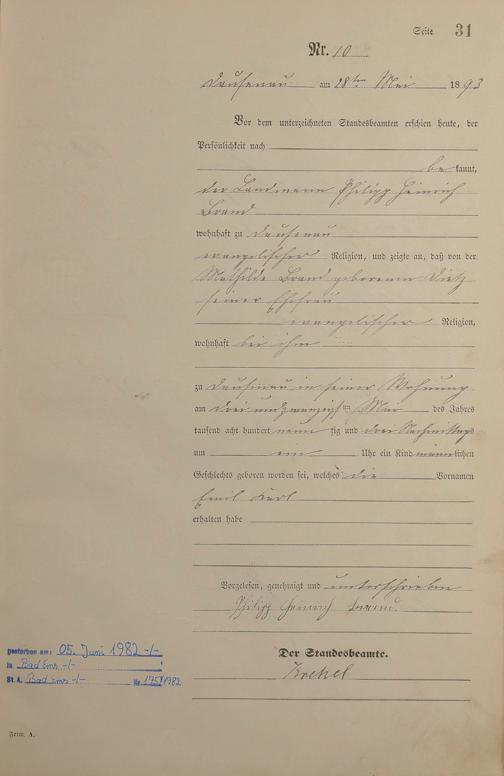 Seite 31
Nr. 10
Dausenau am 28ten Mai 1893
Vor dem unterzeichneten Standesbeamten erschien heute, der
Persönlichkeit nach
bekannt,
der Landmann Philipp Heinrich
Brand
wohnhaft zu Dausenau
evangelischer Religion, und zeigte an, daß von der
Mathilde Brand geborenen Dietz
seiner Ehefrau
evangelischer Religion,
wohnhaft bei ihm
zu Dausenau in seiner Wohnung
am drei und zwanzigsten Mai des Jahres
tausend acht hundert neunzig und drei Nachmittags
um ein Uhr ein Kind männlichen
Geschlechts geboren worden sei, welches die Vornamen
Emil Karl
erhalten habe
Vorgelesen, genehmigt und unterschrieben
Philipp Heinrich Brand.
Der Standesbeamte.
Krekel
gestorben am: 05. Juni 1982 -/-
in Bad Ems -/-
St. A. Bad Ems -/- Nr. 175/1982
Form. A.